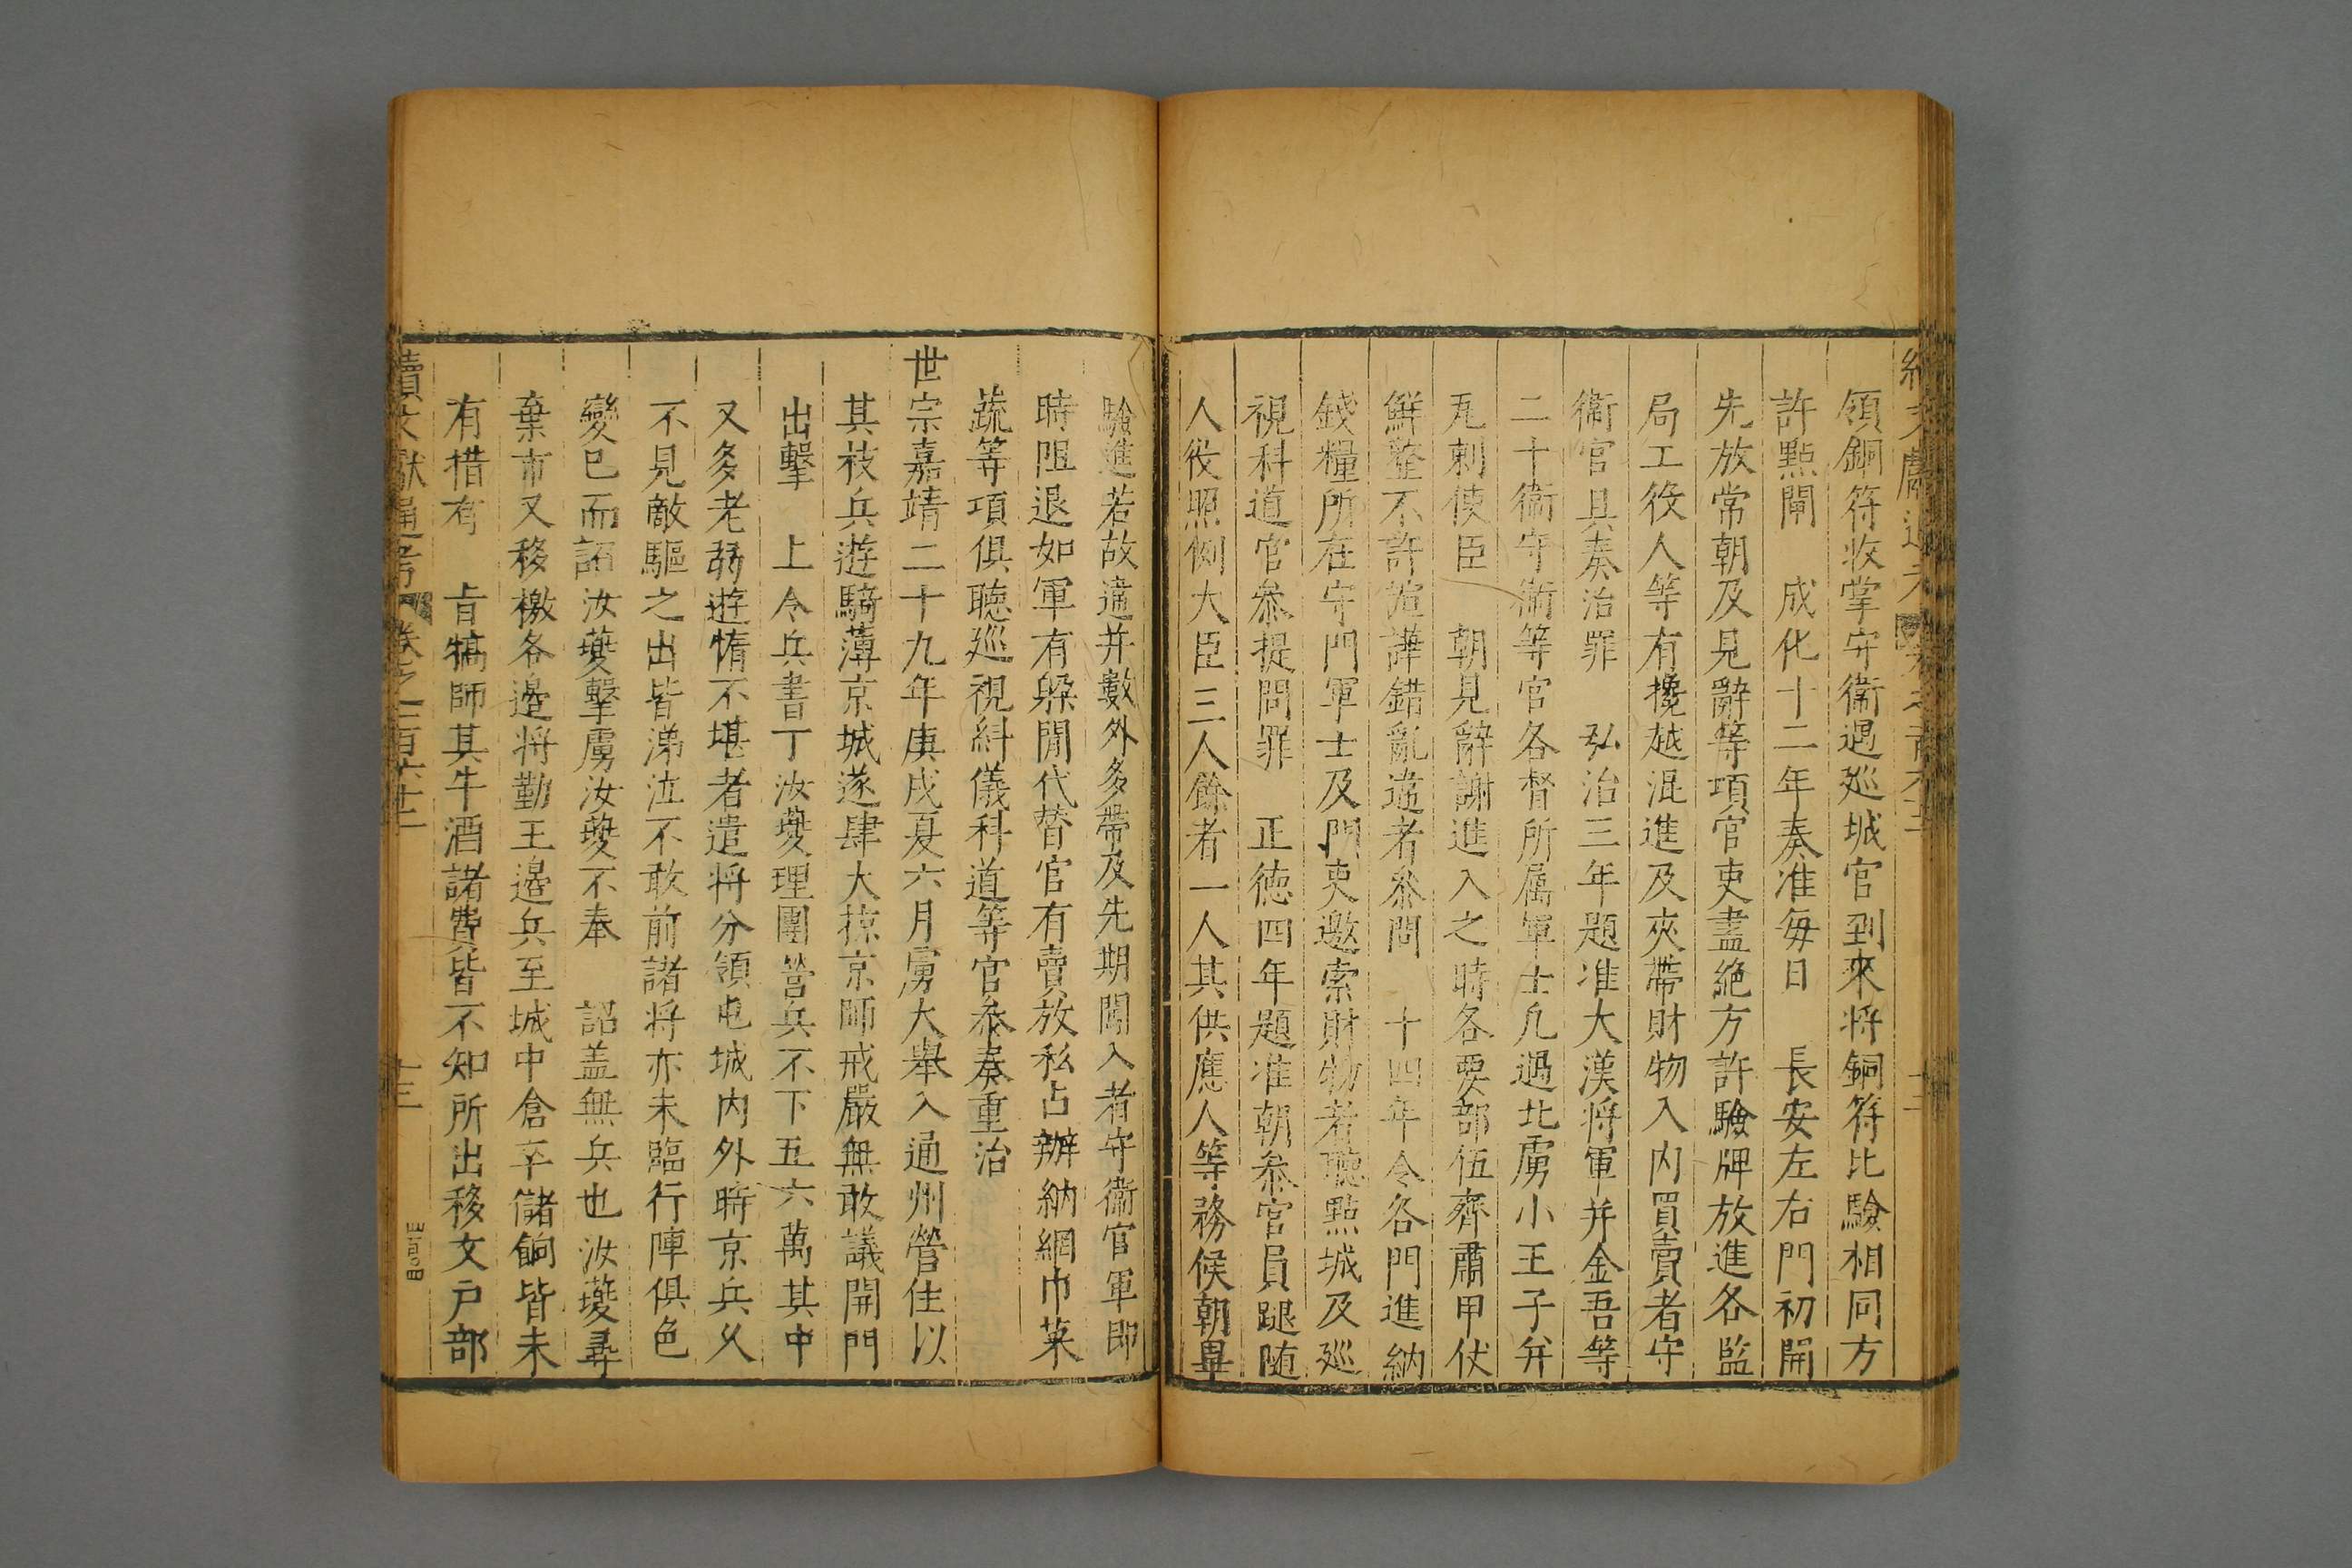 領銅符收掌守衞遇廵城官到來將銅符比驗相同方
許點閘　成化十二年奏准每日　長安左右門初開
先放常朝及見辭等項官吏盡絶方許驗牌放進各監
局工役人等有攙越混進及夾帶財物入内買賣者守
衞官具奏治罪　弘治三年題准大漢將軍并金吾等
二十衞守衞等官各督所属軍士凡遇北虜小王子并
瓦剌使臣　朝見辭謝進入之時各要部伍齊肅甲伏
鮮整不許諠譁錯亂違者叅問　十四年令各門進納
錢糧所在守門軍士及門吏邀索財物者聽點城及廵
視科道官叅提問罪　正徳四年題准朝叅官員跟随
人役照例大臣三人餘者一人其供應人等務候朝畢
驗進若故違并數外多帶及先期闖入者守衞官軍即
時阻退如軍有躲閒代替官有賣放私占辦納網巾菜
蔬等項俱聽廵視糾儀科道等官叅奏重治
世宗嘉靖二十九年庚戌夏六月虜大舉入通州營住以
其枝兵遊騎薄京城遂肆大掠京師戒嚴無敢議開門
出擊　上令兵書丁汝夔理團營兵不下五六萬其中
又多老弱遊惰不堪者遣将分領屯城内外時京兵乆
不見敵驅之出皆涕泣不敢前諸将亦未臨行陣俱色
變已而詔汝夔擊虜汝夔不奉　詔盖無兵也汝夔尋
棄市又移檄各邉将勤王邉兵至城中倉卒儲餉皆未
有措有　㫖犒師其牛酒諸費皆不知所出移文戸部
續文獻通考　卷之一百六十二　十三